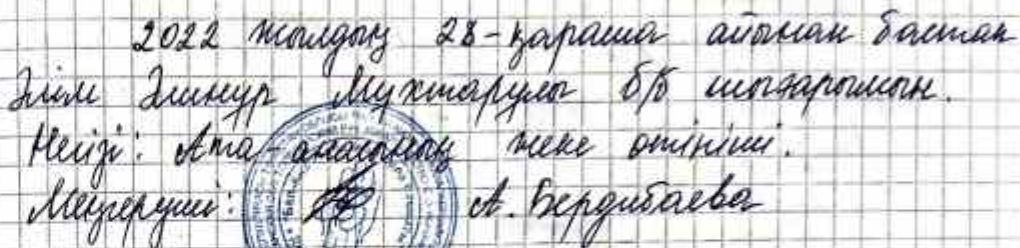 2022 жылдың 28-қараша айынан бастап
Әлім Әлинур Мухтарулы б/б шығарылсын.
Негізі: Ата-анасының жеке өтініші.
Меңгеруші: А. Бердибаева